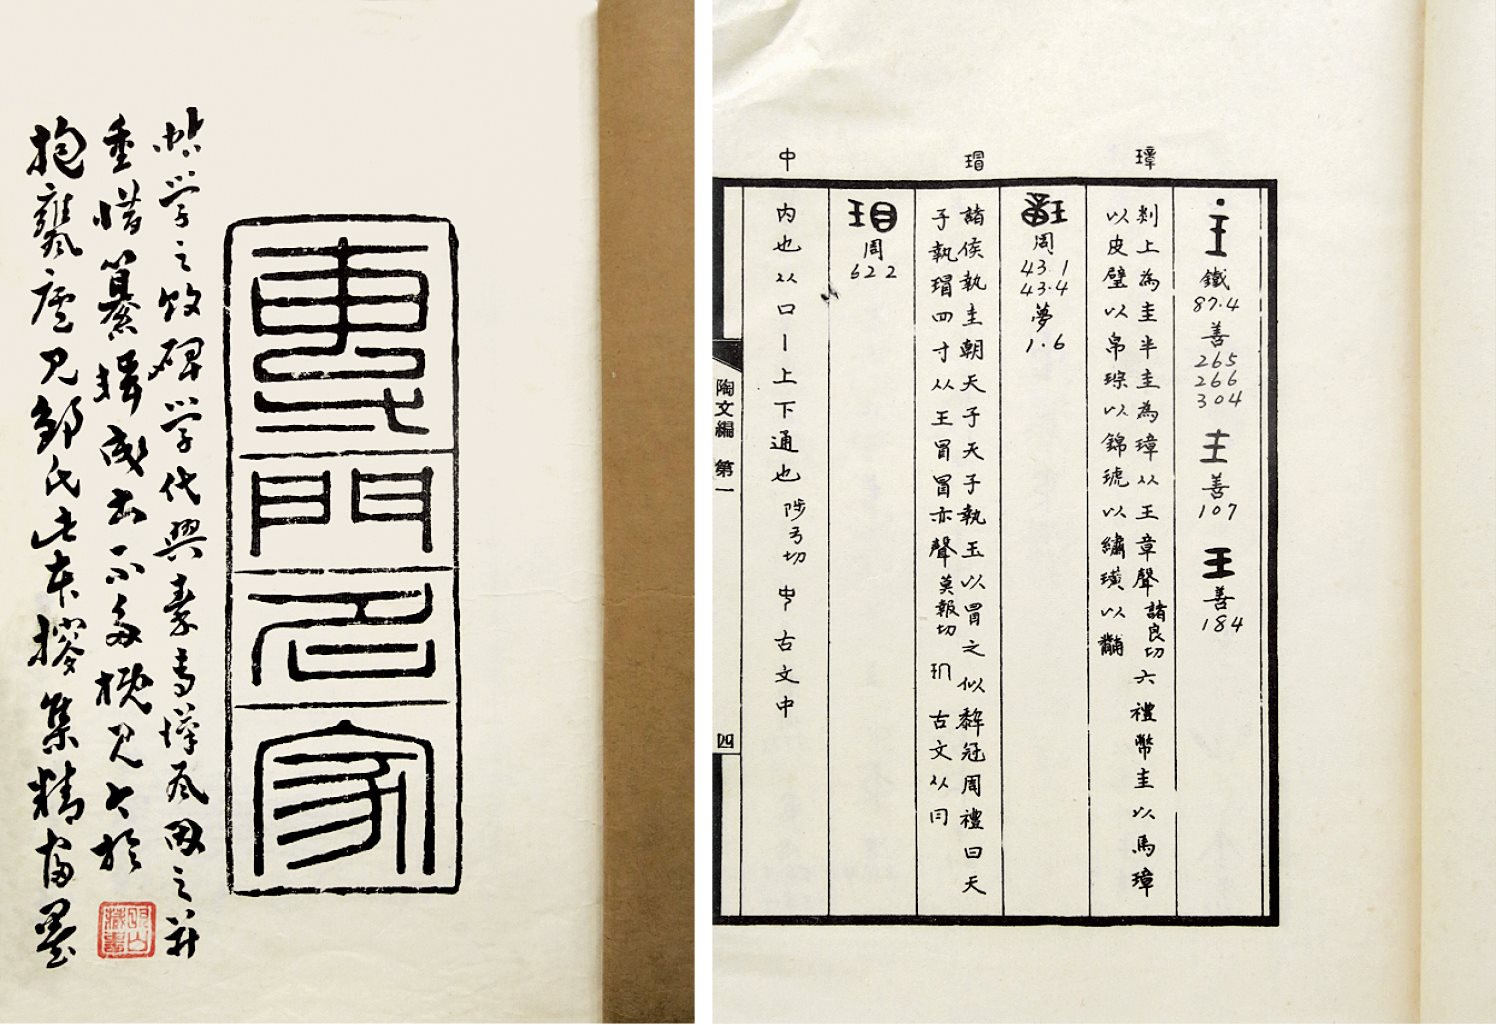 專
門
名
家
帖学之攷碑学代興秦専漢瓦因之并
重惜纂輯成书不多概見今於
抱甕廬見鄒氏此本搜集精富墨
璋
瑁
中
鐵
87.4
善
265
266
304
善
107
善
184
剡上為圭半圭為璋从王章聲諸良切六禮幣圭以馬璋
以皮璧以帛琮以錦琥以繡璜以黼
周
43.1
43.4
夢
1.6
諸侯執圭朝天子天子執玉以冒之似犂冠周禮曰天
子執瑁四寸从王冒冒亦聲莫報切 玥古文从冃
周
622
内也从口丨上下通也陟弓切 古文中
陶文編 第一
四